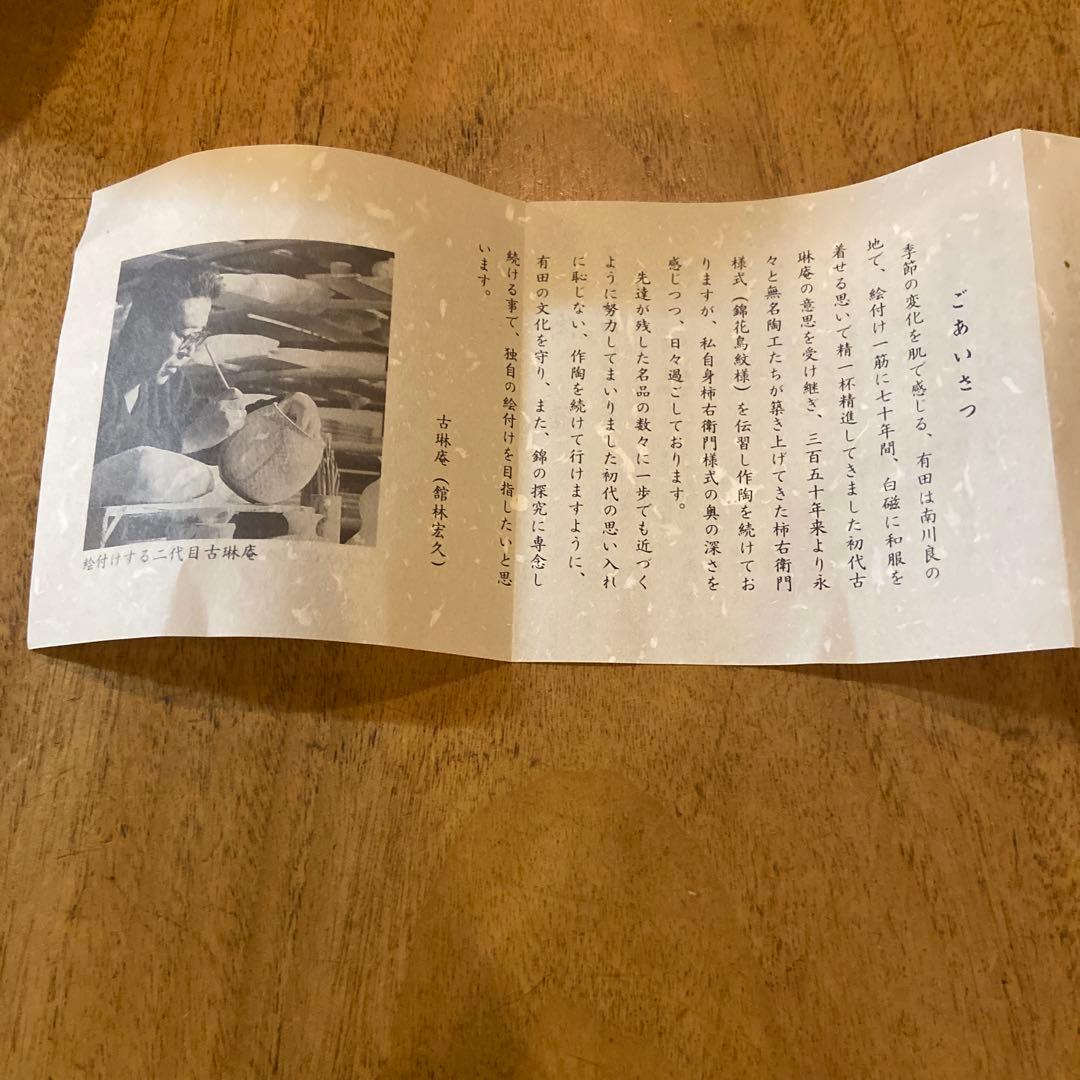 ごあいさつ
季節の変化を肌で感じる、有田は南川良の
地で、絵付け一筋に七十年間、白磁に和服を
着せる思いで精一杯精進してきました初代古
琳庵の意思を受け継ぎ、三百五十年来より永
々と無名陶工たちが築き上げてきた柿右衛門
様式（錦花鳥紋様）を伝習し作陶を続けてお
りますが、私自身柿右衛門様式の奥の深さを
感じつつ、日々過ごしております。
先達が残した名品の数々に一歩でも近づく
ように努力してまいりました初代の思い入れ
に恥じない、作陶を続けて行けますように、
有田の文化を守り、また、錦の探究に専念し
続ける事で、独自の絵付けを目指したいと思
います。
古琳庵（舘林宏久）
絵付けする二代目古琳庵